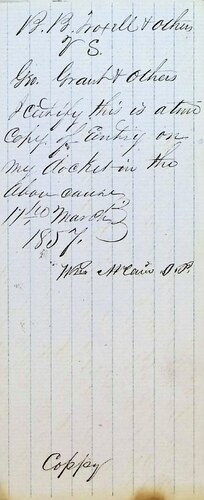 B. B. Troxell & others
VS.
Geo. Grant & others
I certify this is a true
Copy of Entry on
my docket in the
above cause.
17th March
1857.
Wm McCain J.P.
Coppy